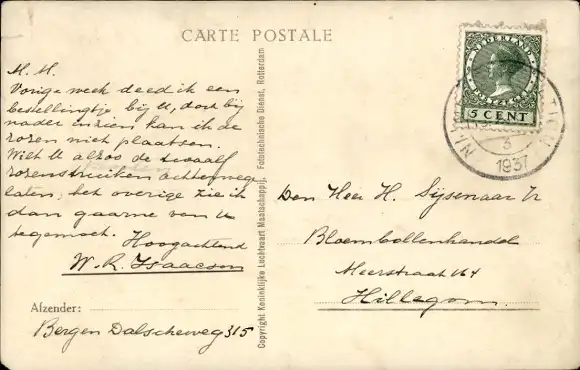 CARTE POSTALE
M. M.
Vorige week deed ik een
bestellingtje bij U, doch bij
nader inzien kan ik de
rozen niet plaatsen.
Wilt U alzoo de twaalf
rozenstruiken achterweg
laten; het overige zie ik
dan gaarne van U
tegemoet. Hoogachtend
W. R. Isaacson
Afzender:
Bergen Dalscheweg 315
Copyright Koninklijke Luchtvaart Maatschappij, Fototechnische Dienst, Rotterdam
NEDERLAND
5 CENT
3
1937
Den Heer H. Sijsenaar Jr
Bloembollenhandel
Meerstraat 164
Hillegom.